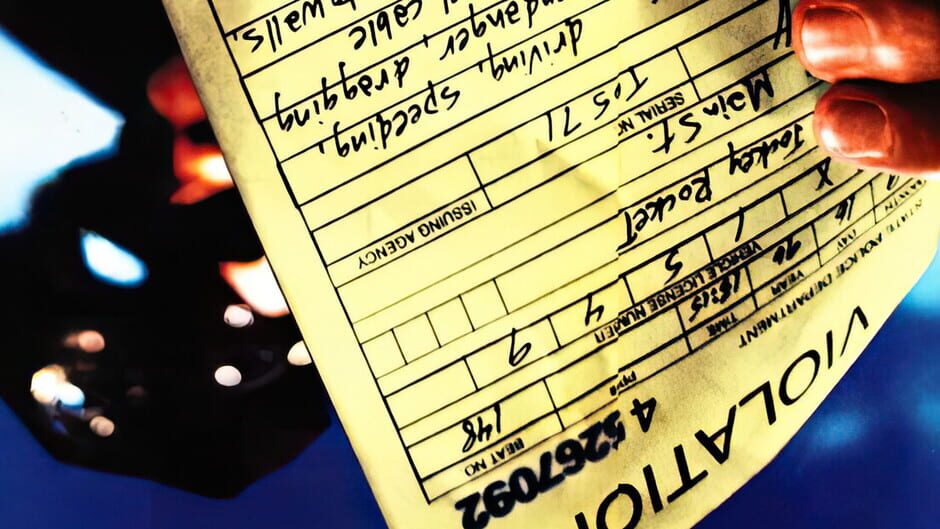 VIOLATIO
45267092
POLICE DEPARTMENT
DAY YEAR TIME BEAT NO
16 96 18:15 148
VEHICLE LICENSE NUMBER
X 1 5 4 9
Jockey Rocket
Main St.
SERIAL NR. ISSUING AGENCY
T0571
driving, speeding,
endanger, dragging
cable
walls.